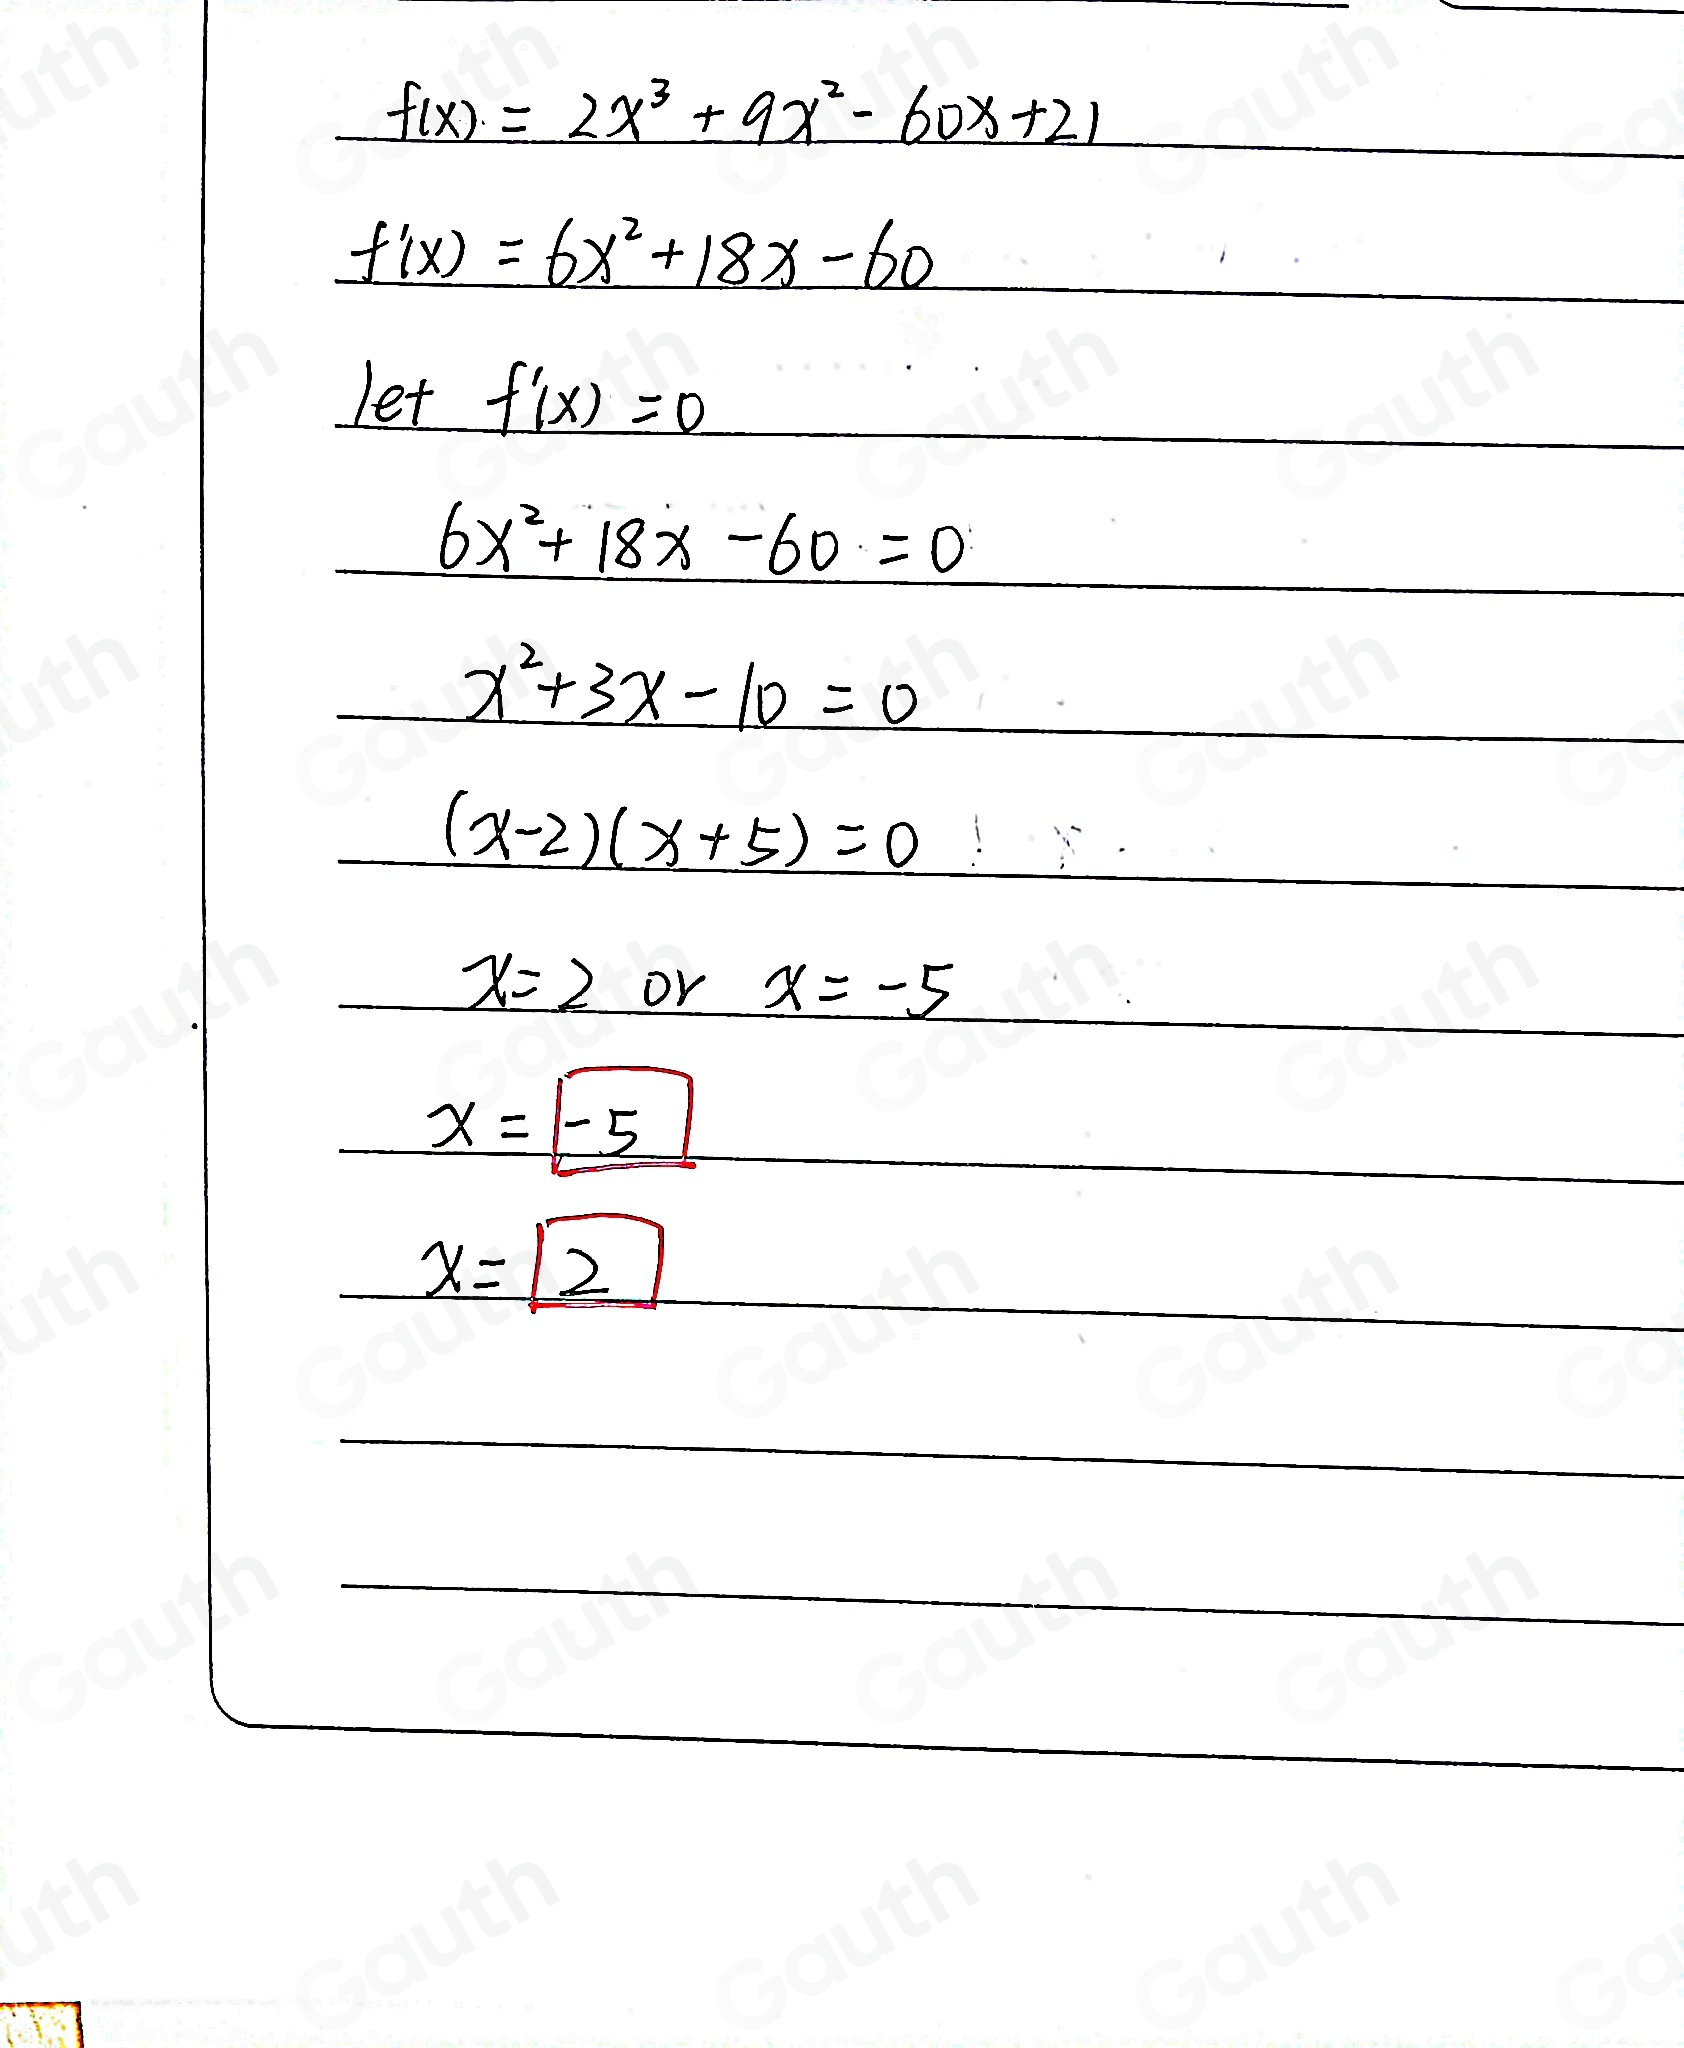 f(x) = 2x³ + 9x² - 60x + 21
f'(x) = 6x² + 18x - 60
let f'(x) = 0
6x² + 18x - 60 = 0
x² + 3x - 10 = 0
(x-2)(x+5) = 0
x = 2 or x = -5
x = -5
x = 2
Gauth